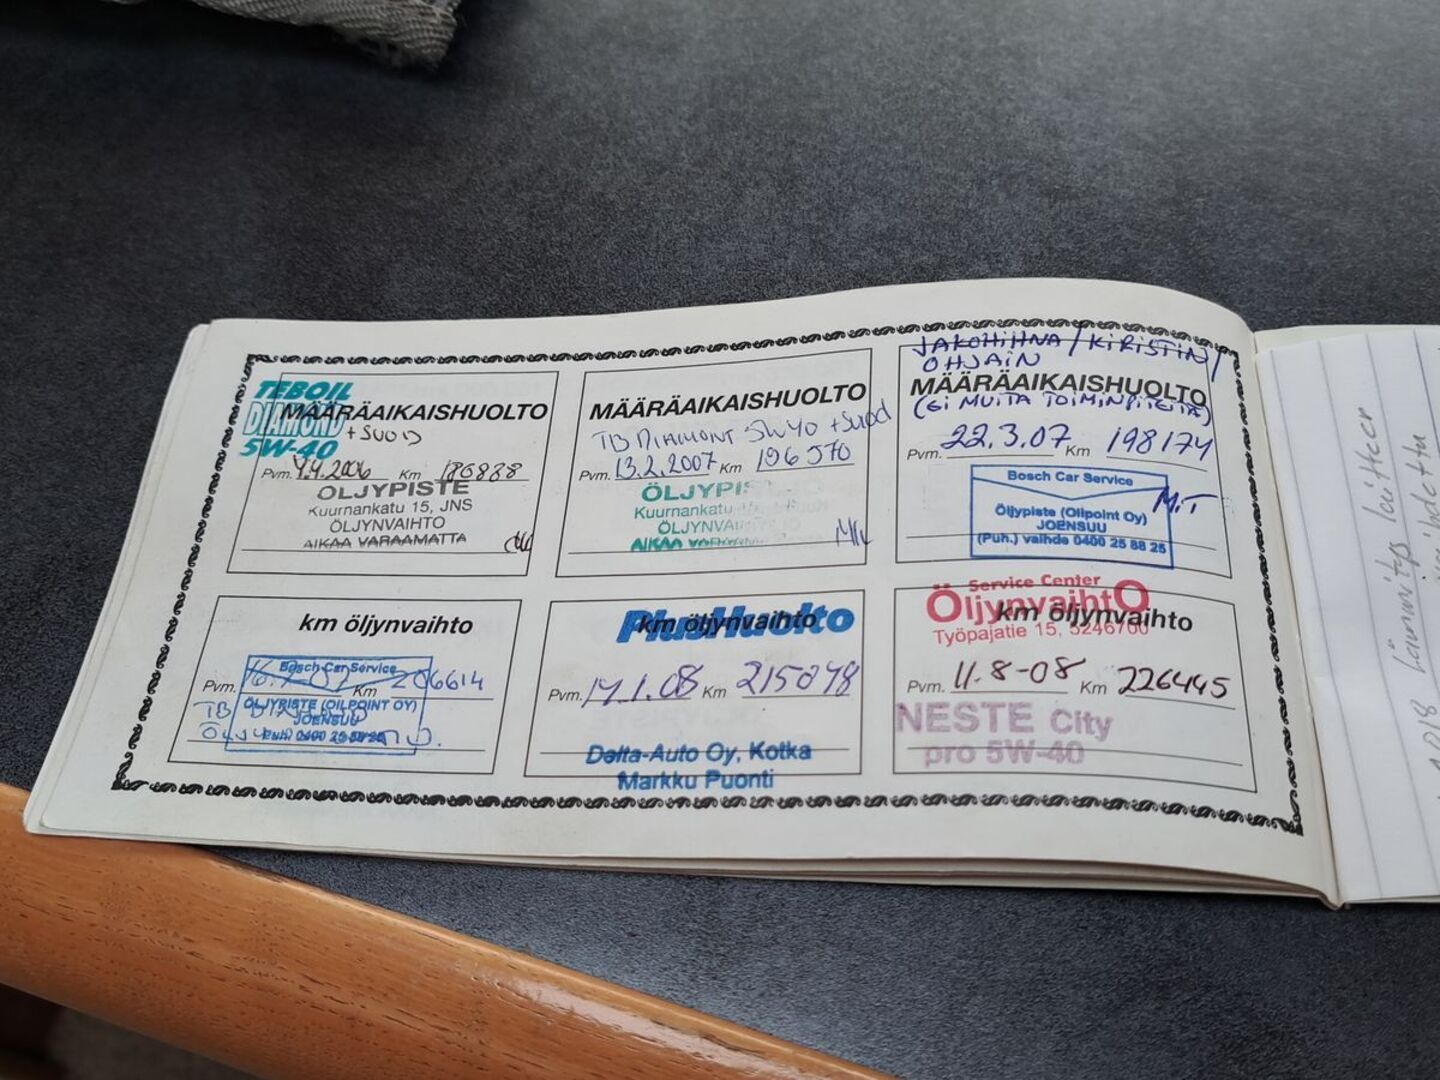 TEBOIL
DIAMOND
5W-40
MÄÄRÄAIKAISHUOLTO
+ SUOD
Pvm. 4.4.2006 Km 186888
ÖLJYPISTE
Kuurnankatu 15, JNS
ÖLJYNVAIHTO
AIKAA VARAAMATTA
MÄÄRÄAIKAISHUOLTO
TB DIAMONT 5W40 + Suod
Pvm. 13.2.2007 Km 196570
ÖLJYPI
Kuurnankatu
ÖLJYNVAI
AIKAA
JAKOHIHNA / KIRISTIN /
OHJAIN
MÄÄRÄAIKAISHUOLTO
(EI MUITA TOIMINPITEITÄ)
Pvm. 22.3.07 Km 198174
Bosch Car Service
M.T
Öljypiste (Oilpoint Oy)
JOENSUU
(Puh.) vaihde 0400 25 88 25
km öljynvaihto
Bosch Car Service
Pvm. Km 206614
ÖLJYPISTE (OILPOINT OY)
TB
JOENSUU
Puh. 0400 25 88 25
PlusHuolto
km öljynvaihto
Pvm. 14.1.08 Km 215078
Delta-Auto Oy, Kotka
Markku Puonti
Service Center
ÖljynvaihtO
km öljynvaihto
Työpajatie 15, 5246700
Pvm. 11.8-08 Km 226445
NESTE City
pro 5W-40
2018 Lämmitys